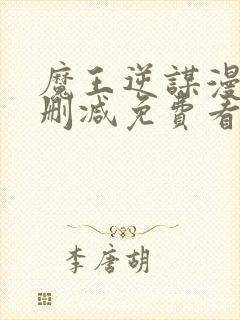 魔王逆謀漫
刪減免費看
李唐胡